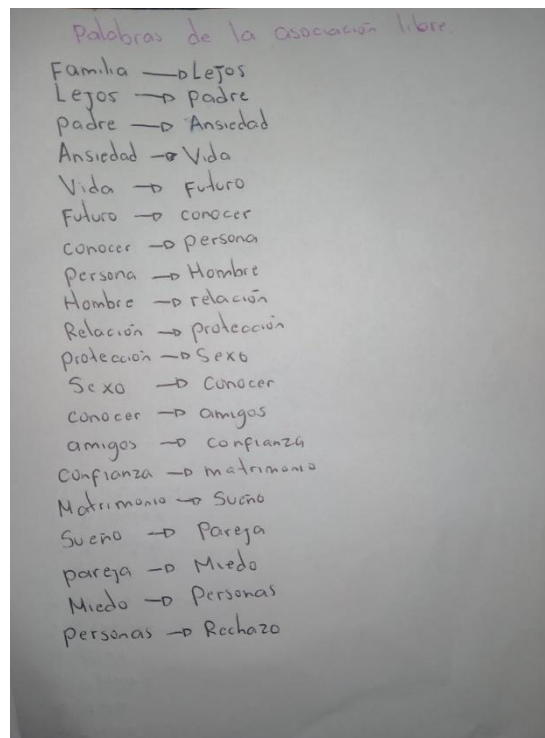 Palabras de la asociación libre.
Familia → Lejos
Lejos → padre
padre → Ansiedad
Ansiedad → Vida
Vida → Futuro
Futuro → conocer
conocer → persona
persona → Hombre
Hombre → relación
Relación → protección
protección → Sexo
Sexo → Conocer
conocer → amigos
amigos → confianza
Confianza → matrimonio
Matrimonio → Sueño
Sueño → Pareja
pareja → Miedo
Miedo → Personas
personas → Rechazo